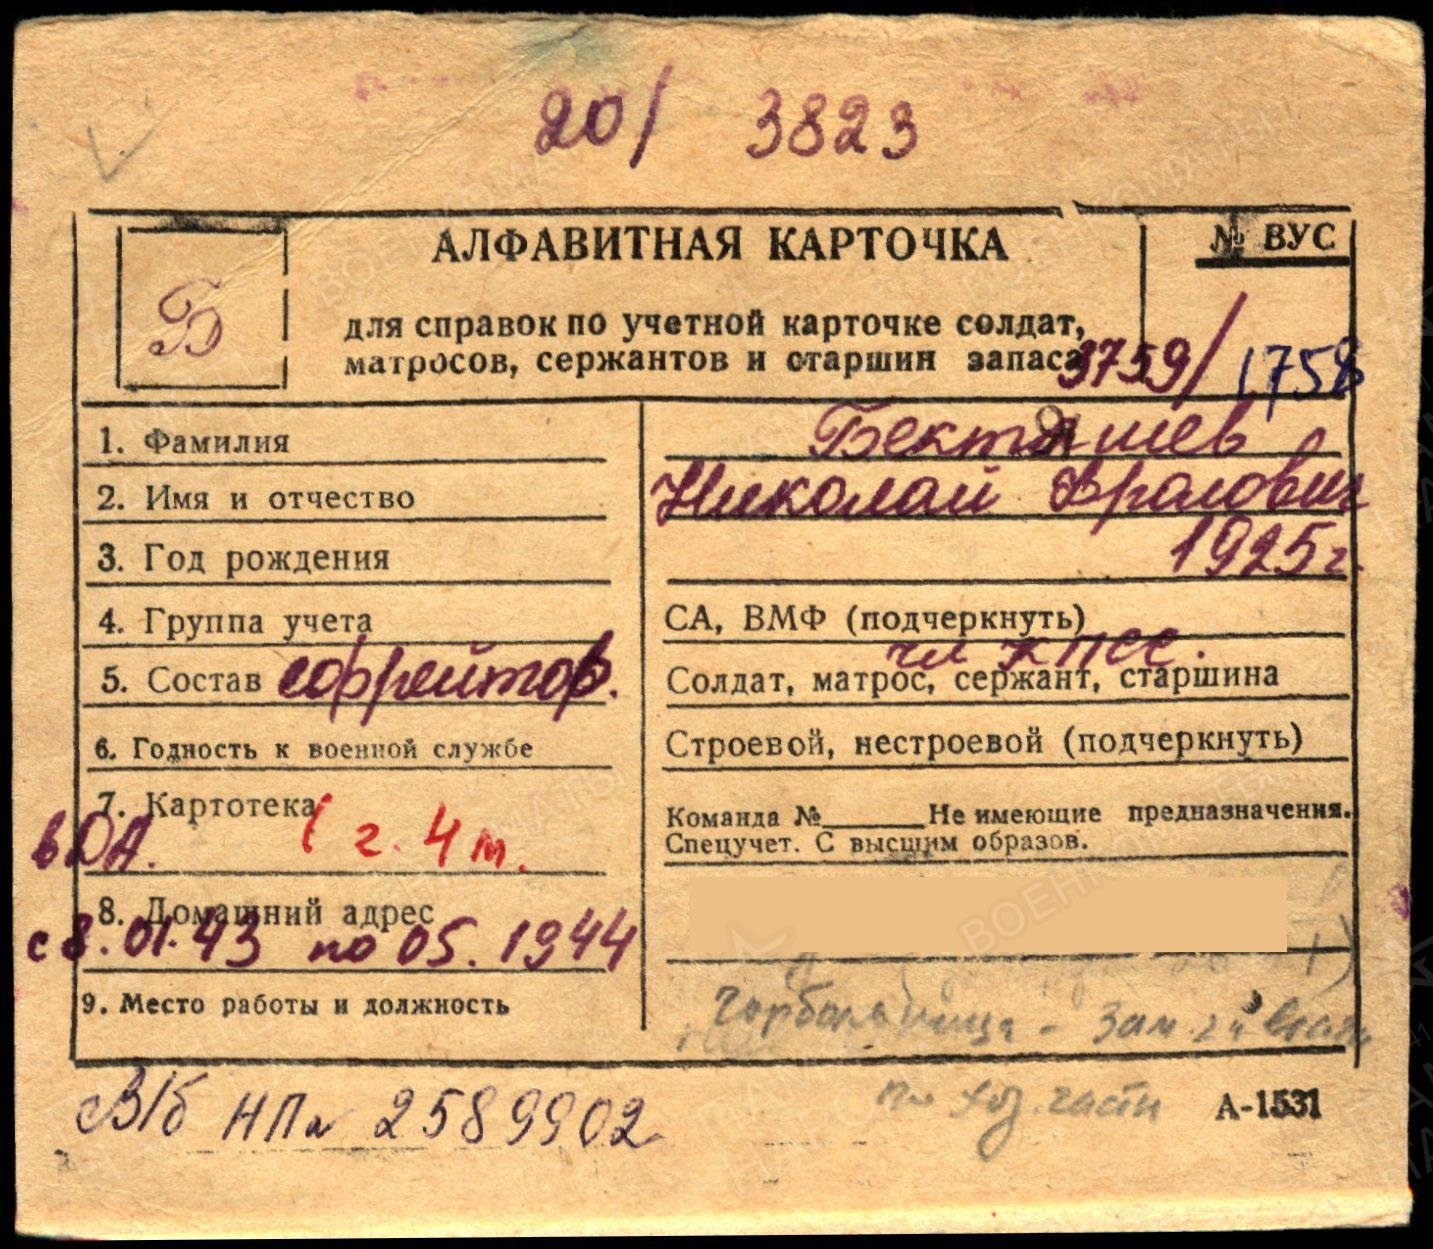 20/ 3823
АЛФАВИТНАЯ КАРТОЧКА
№ ВУС
Б
для справок по учетной карточке солдат,
матросов, сержантов и старшин запаса
3759/ 1758
1. Фамилия Бекташев
2. Имя и отчество Николай
3. Год рождения 1925г.
4. Группа учета СА, ВМФ (подчеркнуть)
чл КПСС.
5. Состав Солдат, матрос, сержант, старшина
6. Годность к военной службе Строевой, нестроевой (подчеркнуть)
7. Картотека Команда №______Не имеющие предназначения.
в ДА. г. 4 т. Спецучет. С высшим образов.
8. Домашний адрес
с 8.01.43 по 05.1944
9. Место работы и должность Горбольница - Зам. гл врача
по хоз. части
В/б НПа 2589902
А-1531